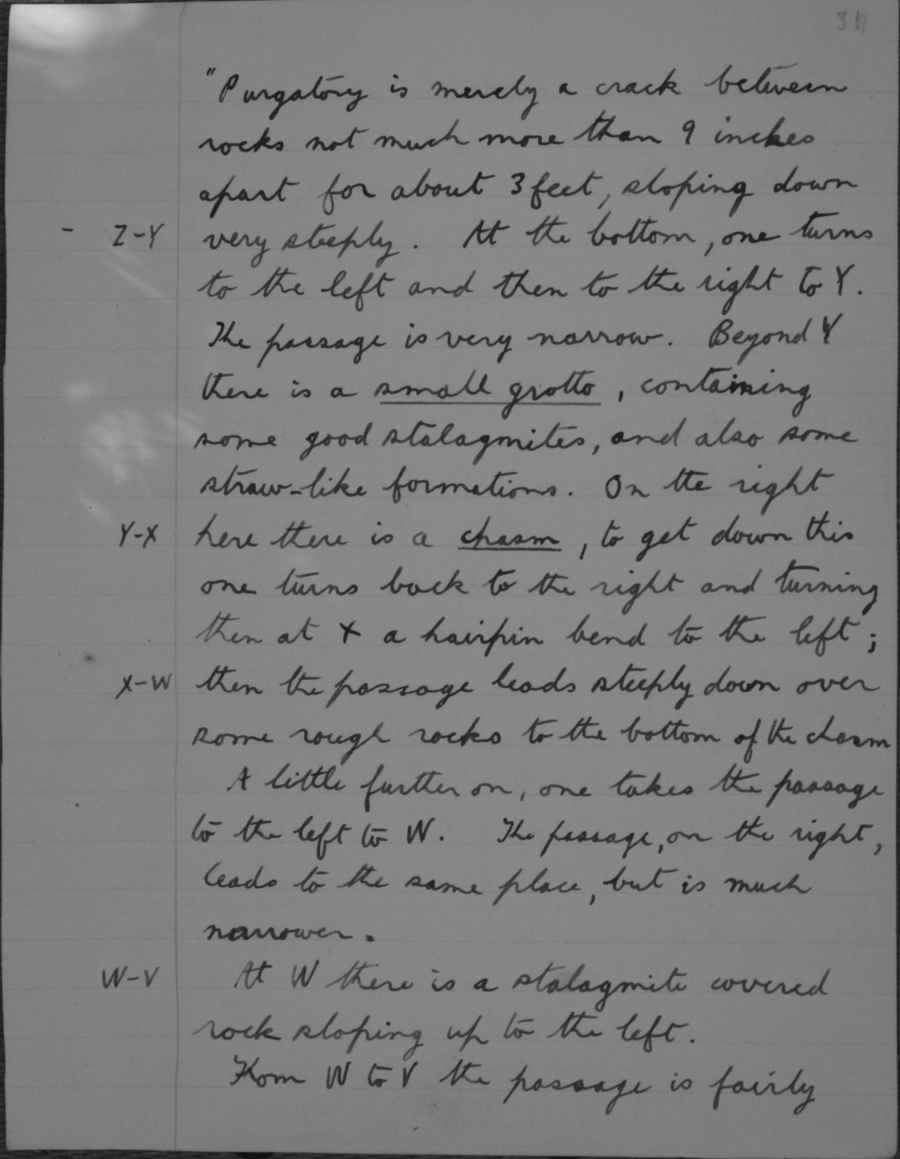 "Purgatory is merely a crack between
rocks not much more than 9 inches
apart for about 3 feet, sloping down
- Z-Y very steeply. At the bottom, one turns
to the left and then to the right to Y.
The passage is very narrow. Beyond Y
there is a small grotto, containing
some good stalagmites, and also some
straw-like formations. On the right
Y-X here there is a chasm, to get down this
one turns back to the right and turning
then at X a hairpin bend to the left;
X-W then the passage leads steeply down over
some rough rocks to the bottom of the chasm
A little further on, one takes the passage
to the left to W. The passage, on the right,
leads to the same place, but is much
narrower.
W-V At W there is a stalagmite covered
rock sloping up to the left.
From W to V the passage is fairly